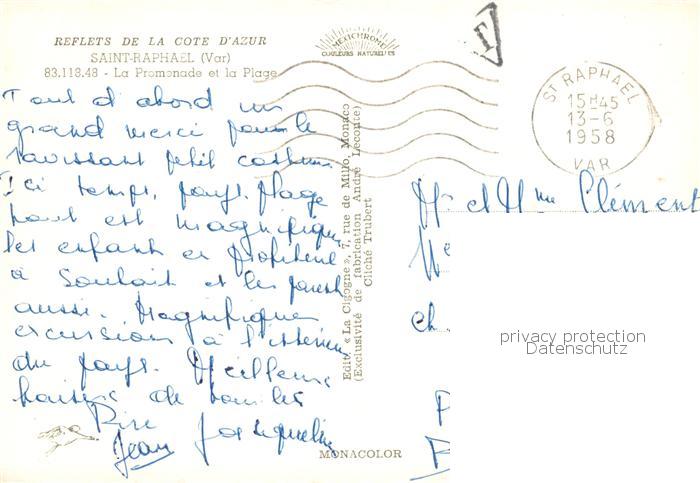 REFLETS DE LA COTE D'AZUR
SAINT-RAPHAEL (Var)
83.118.48 - La Promenade et la Plage
MEXICHROME
COULEURS NATURELLES
T
ST RAPHAEL
15H45
13-6
1958
VAR
Tout d'abord un
grand merci pour le
ravissant petit costume
Ici temps, pays, plage
tout est magnifique
les enfants en profitent
à souhait et les parents
aussi. Magnifiques
excursions à l'intérieur
du pays. Meilleurs
baisers de tous les
Jean Jacqueline
Edit. « La Cigogne », 7, rue de Millo, Monaco
(Exclusivité de fabrication André Leconte)
Cliché Trubert
MONACOLOR
Mr et Mme Clément
privacy protection
Datenschutz